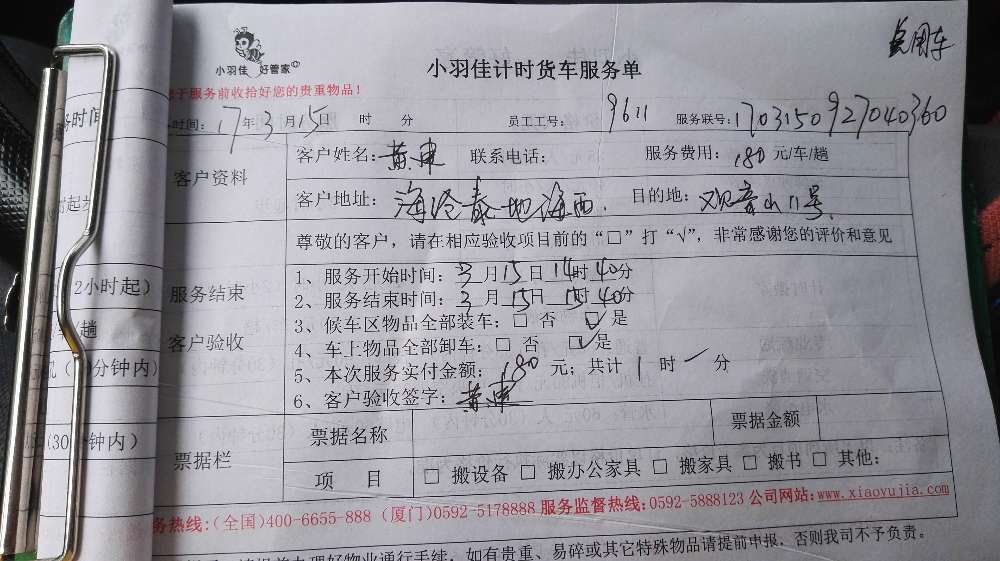 吴用车
小羽佳 好管家
小羽佳计时货车服务单
于服务前收拾好您的贵重物品！
时间：17年3月15日 时 分 员工工号：9611 服务联号：1703150927040360
务时间
客户资料
客户姓名：黄建 联系电话： 服务费用：180元/车/趟
客户地址：海沧泰地海西 目的地：观音山11号
时起步
尊敬的客户，请在相应验收项目前的“□”打“√”，非常感谢您的评价和意见
2小时起）
服务结束
客户验收
1、服务开始时间：3月15日14时40分
2、服务结束时间：3月15日15时40分
3、候车区物品全部装车：□ 否 ☑ 是
/趟
4、车上物品全部卸车：□ 否 ☑ 是
分钟内）
5、本次服务实付金额：180元；共计 1 时 一 分
6、客户验收签字：黄建
（30分钟内）
票据栏
票据名称 票据金额
项 目 □ 搬设备 □ 搬办公家具 □ 搬家具 □ 搬书 □ 其他：
务热线：（全国）400-6655-888（厦门）0592-5178888 服务监督热线：0592-5888123 公司网站：www.xiaoyujia.com
办理好物业通行手续，如有贵重、易碎或其它特殊物品请提前申报，否则我司不予负责。